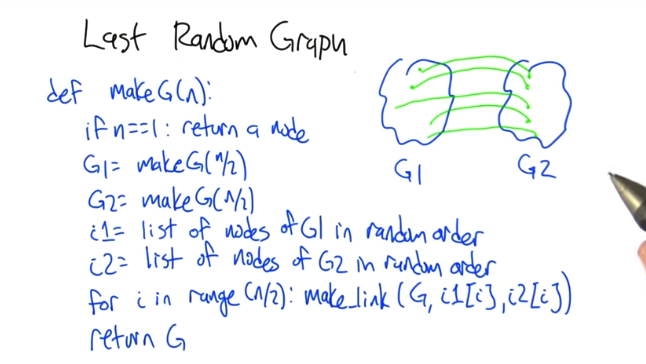 Last Random Graph
def makeG(n):
if n==1: return a node
G1= makeG(n/2)
G2= makeG(n/2)
i1= list of nodes of G1 in random order
i2= list of nodes of G2 in random order
for i in range(n/2): make_link(G, i1[i], i2[i])
return G
G1
G2